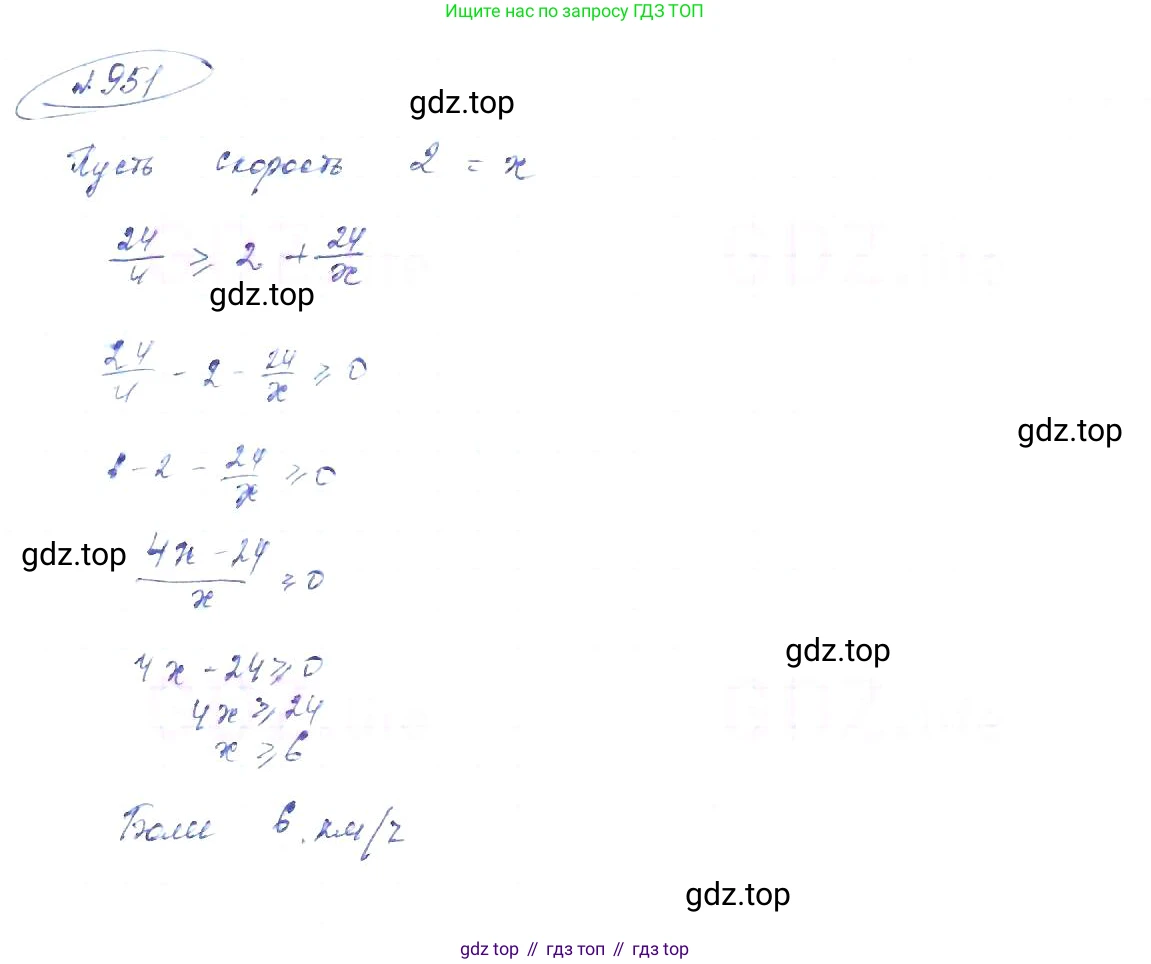 Ищите нас по запросу ГДЗ ТОП
№951
gdz.top
Пусть скорость 2 = x
24/4 ≥ 2 + 24/x
gdz.top
24/4 - 2 - 24/x ≥ 0
gdz.top
- 2 - 24/x ≥ 0
gdz.top
(4x - 24)/x ≥ 0
gdz.top
4x - 24 ≥ 0
4x ≥ 24
x ≥ 6
Более 6 км/ч
gdz.top
gdz top // гдз топ // gdz top